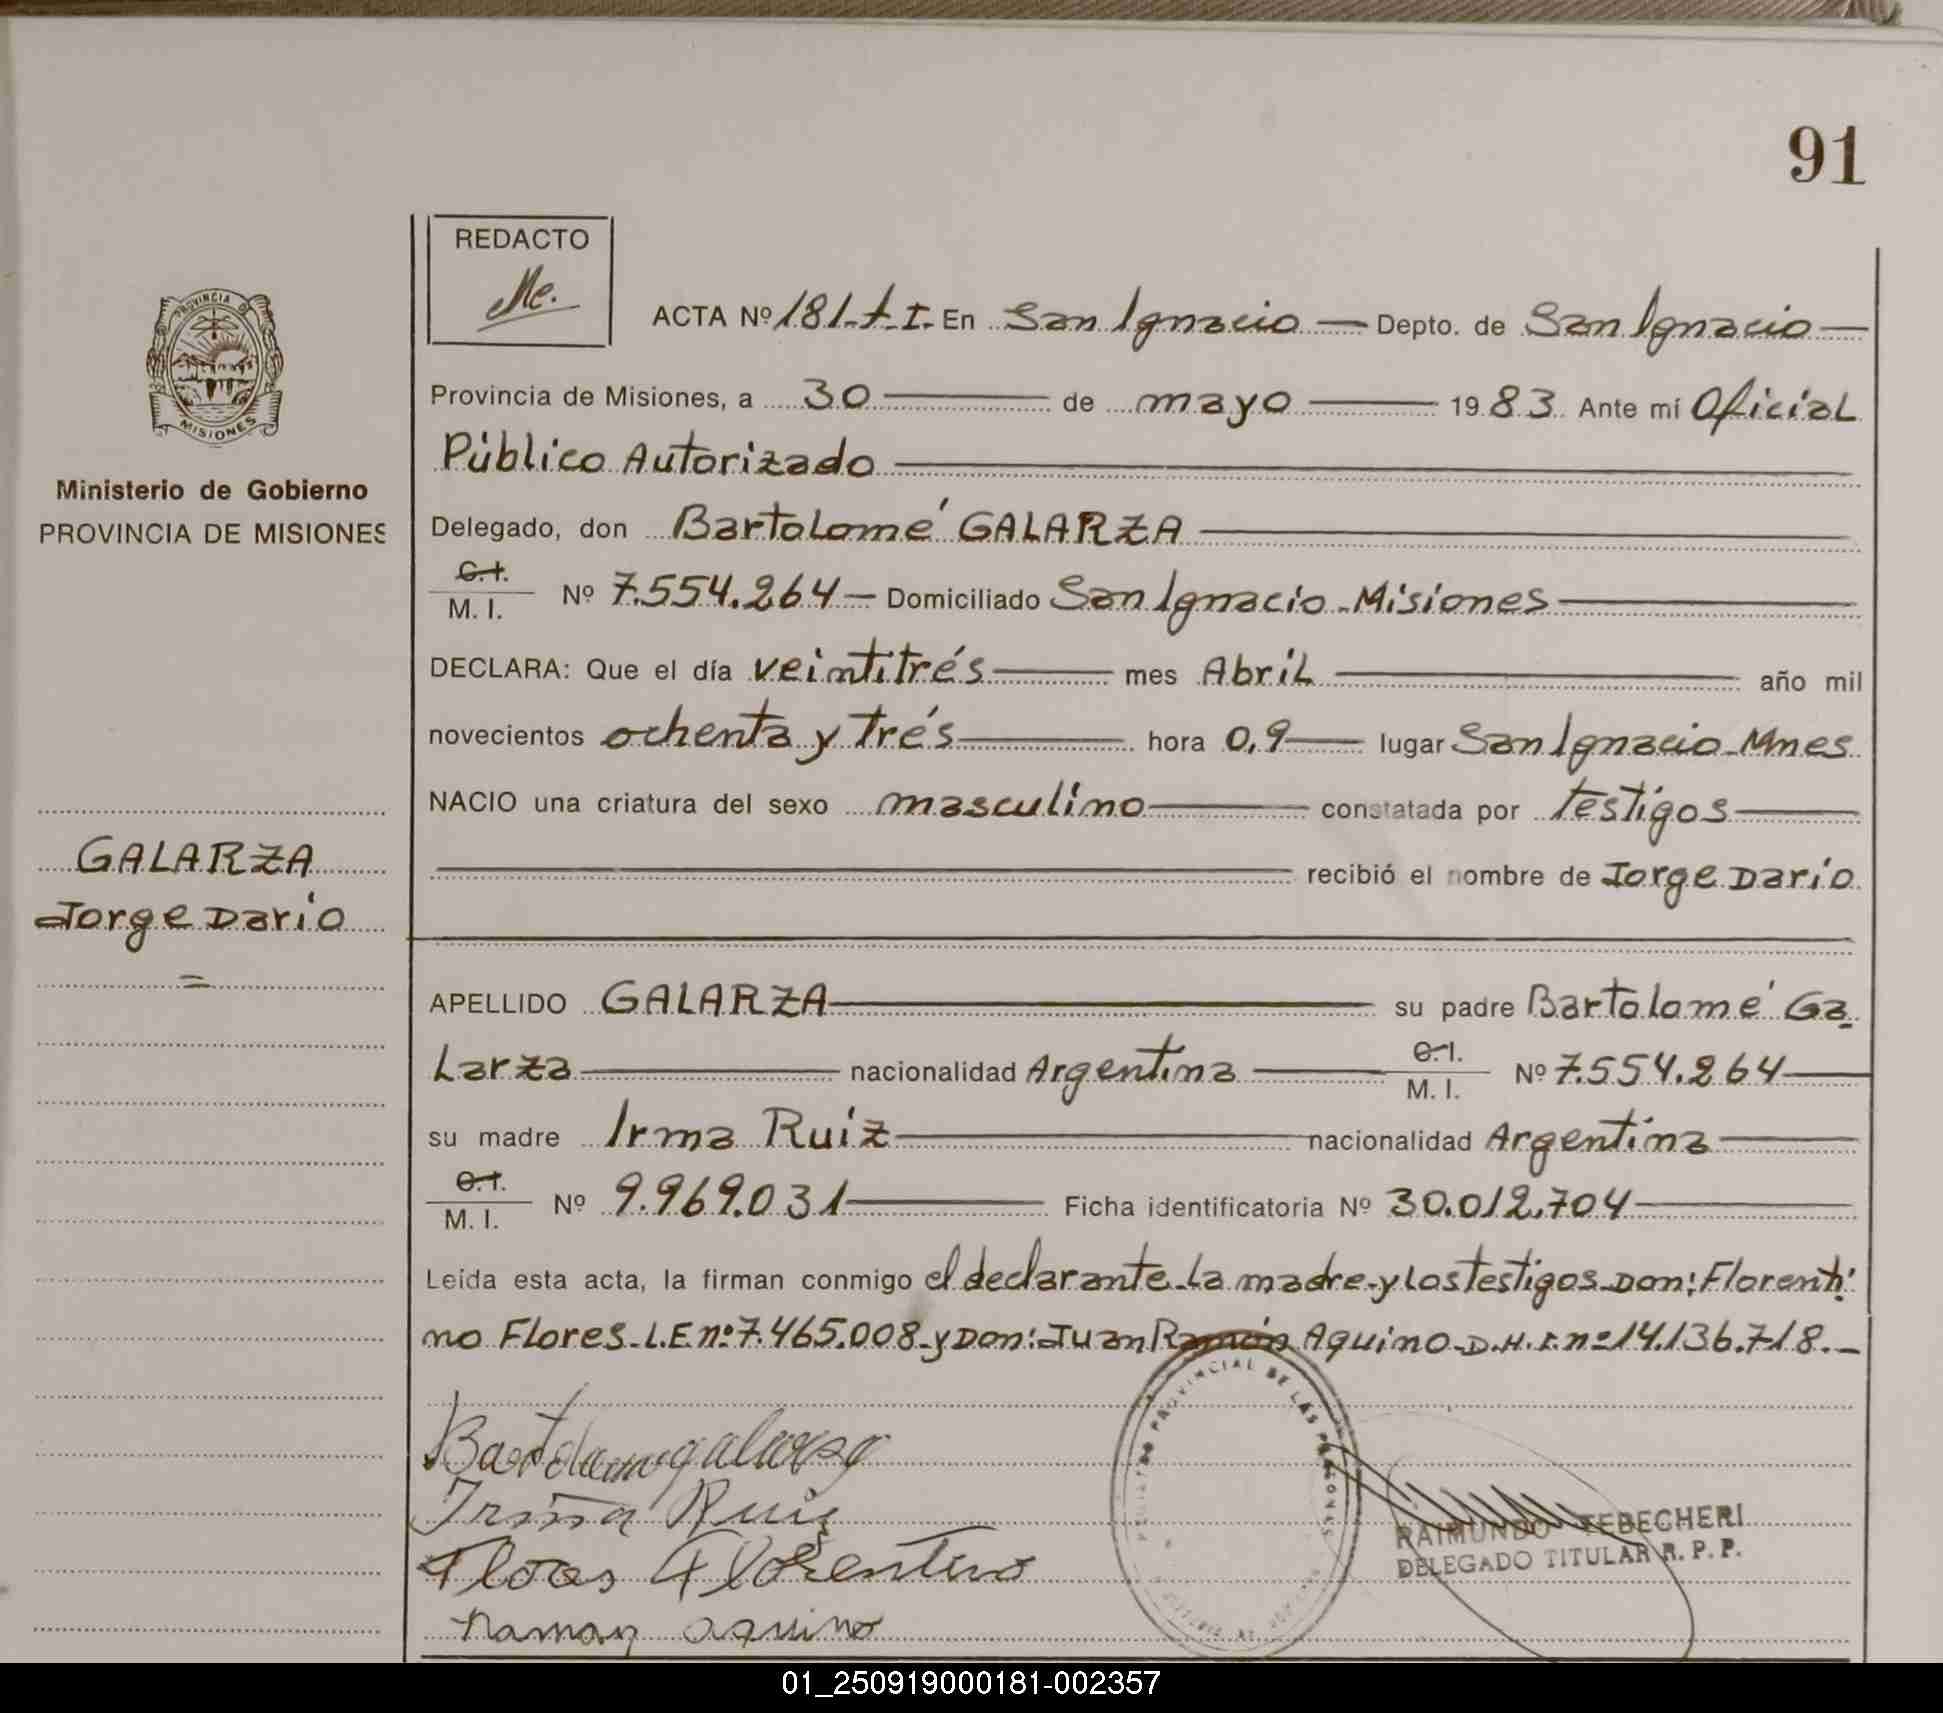 91
REDACTO
Me.
PROVINCIA DE
MISIONES
ACTA Nº 181-t-I- En San Ignacio — Depto. de San Ignacio —
Provincia de Misiones, a 30 — de mayo — 1983 Ante mí Oficial
Público Autorizado —
Ministerio de Gobierno
PROVINCIA DE MISIONES
Delegado, don Bartolomé GALARZA —
C.I. / M. I. Nº 7.554.264 — Domiciliado San Ignacio - Misiones —
DECLARA: Que el día veintitrés — mes Abril — año mil
novecientos ochenta y trés — hora 0,9 — lugar San Ignacio - Mnes
NACIO una criatura del sexo masculino — constatada por Testigos —
— recibió el nombre de Jorge Darío
GALARZA
Jorge Darío
=
APELLIDO GALARZA — su padre Bartolomé Ga
Larza — nacionalidad Argentina — C.I. / M. I. Nº 7.554.264 —
su madre Irma Ruiz — nacionalidad Argentina —
C.I. / M. I. Nº 9.969.031 — Ficha identificatoria Nº 30.012.704 —
Leída esta acta, la firman conmigo el declarante - La madre - y Los testigos - Don: Florenti
no Flores - L.E nº 7.465.008 - y Don: Juan Ramón Aquino - D.N.I. nº 14.136.718. —
PROVINCIAL DE LAS PERSONAS
Irma Ruiz
Flores Florentino
Ramon aquino
RAIMUNDO TEBECHERI
DELEGADO TITULAR R. P. P.
01_250919000181-002357